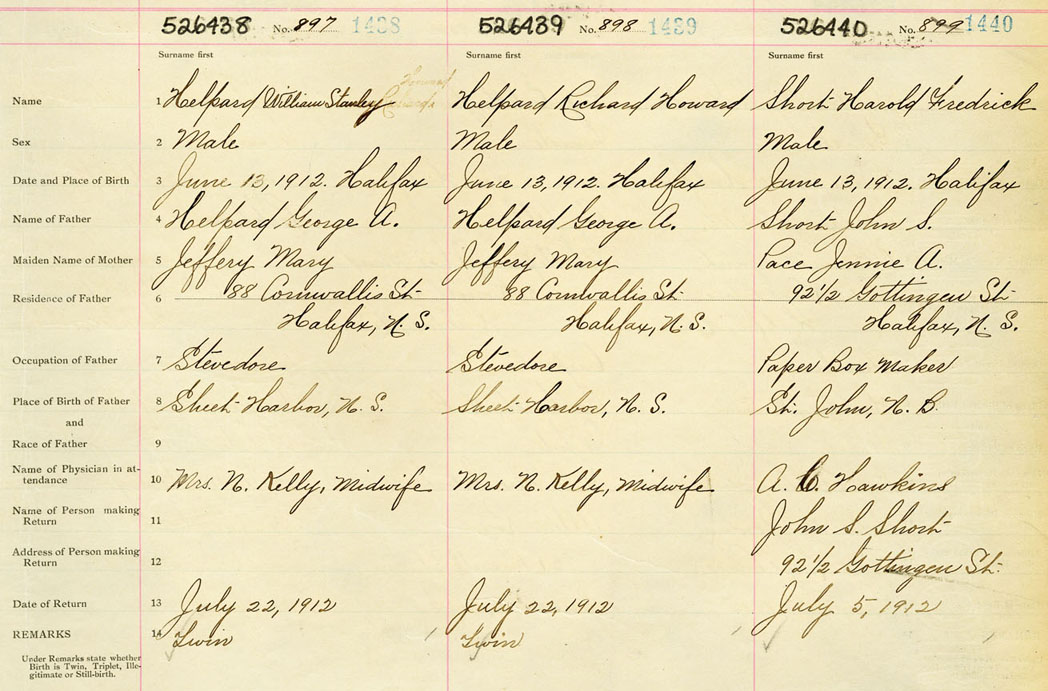 526438 No. 897 1438 526439 No. 898 1439 526440 No. 899 1440
Surname first Surname first Surname first
Name 1 Helpard William Stanley Helpard Richard Howard Short Harold Fredrick
Sex 2 Male Male Male
Date and Place of Birth 3 June 13, 1912. Halifax June 13, 1912. Halifax June 13, 1912. Halifax
Name of Father 4 Helpard George A. Helpard George A. Short John S.
Maiden Name of Mother 5 Jeffery Mary Jeffery Mary Pace Jennie A.
Residence of Father 6 88 Cornwallis St 88 Cornwallis St 92 1/2 Gottingen St
Halifax, N. S. Halifax, N. S. Halifax, N. S.
Occupation of Father 7 Stevedore Stevedore Paper Box Maker
Place of Birth of Father 8 Sheet Harbor, N. S. Sheet Harbor, N. S. St. John, N. B.
and
Race of Father 9
Name of Physician in at-
tendance 10 Mrs. N. Kelly, Midwife Mrs. N. Kelly, Midwife A. Hawkins
Name of Person making
Return 11 John S. Short
Address of Person making
Return 12 92 1/2 Gottingen St.
Date of Return 13 July 22, 1912 July 22, 1912 July 5, 1912
REMARKS 14 Twin Twin
Under Remarks state whether
Birth is Twin, Triplet, Ille-
gitimate or Still-birth.